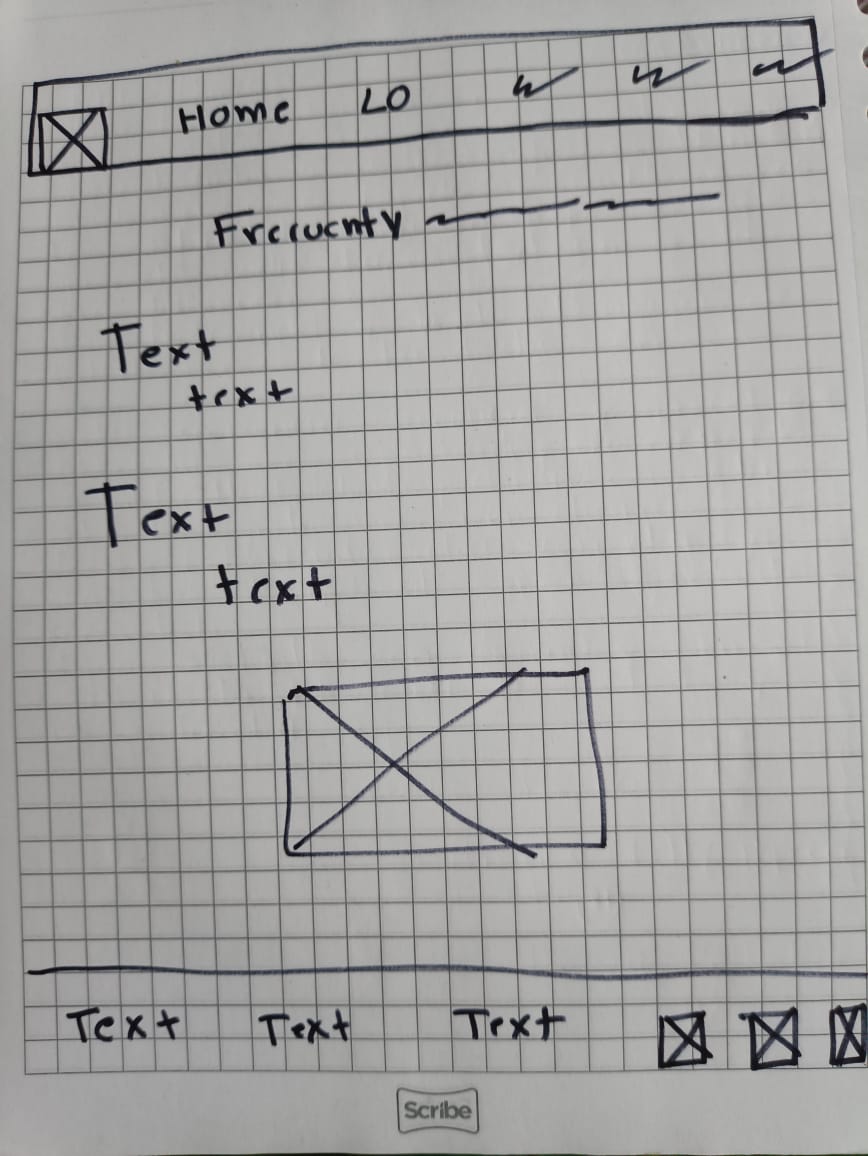 Home LO
Frecuenty
Text
text
Text
text
Text Text Text
Scribe